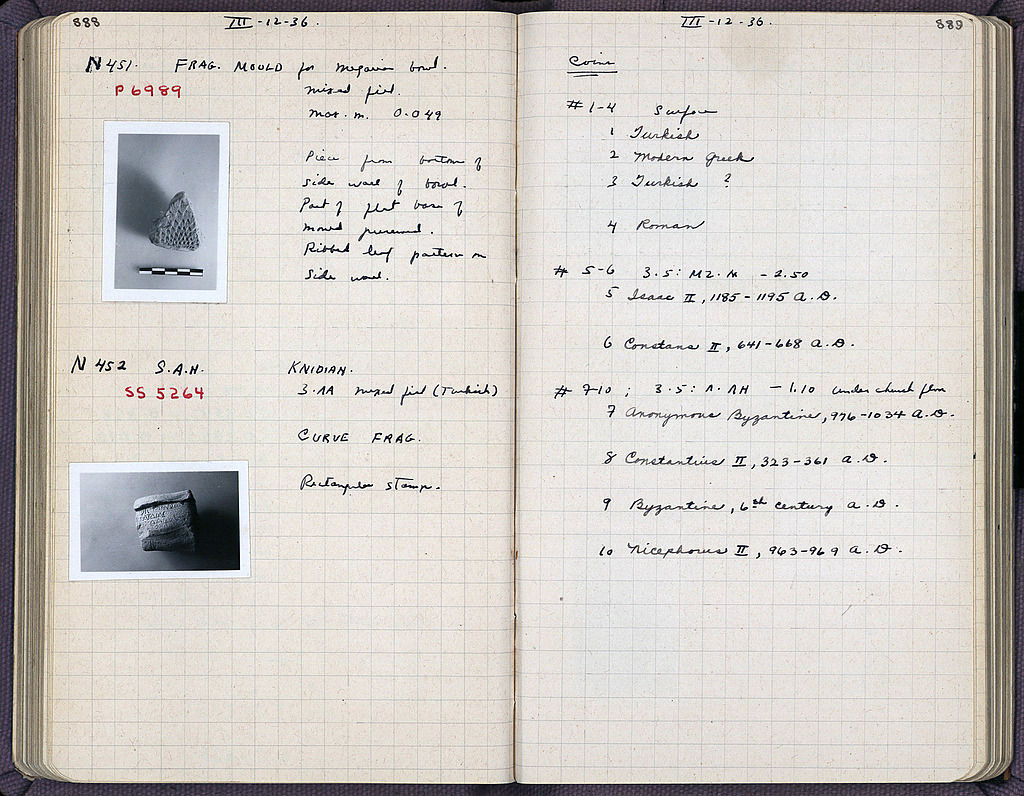 888
III-12-36.
N 451. FRAG. MOULD for megarian bowl.
P 6989
mixed fill.
max. m. 0.049
Piece from bottom of
side wall of bowl.
Part of flat base of
mould preserved.
Ribbed leaf pattern on
side wall.
N 452 S.A.H. KNIDIAN.
SS 5264
3.AA mixed fill (Turkish)
CURVE FRAG.
Rectangular stamp.
III-12-36.
889
Coins
# 1-4 Surface
1 Turkish
2 Modern Greek
3 Turkish ?
4 Roman
# 5-6 3.5: - 2.50
5 Isaac II, 1185-1195 A.D.
6 Constans II, 641-668 A.D.
# 7-10; 3.5: - 1.10 under church floor
7 Anonymous Byzantine, 976-1034 A.D.
8 Constantius II, 323-361 A.D.
9 Byzantine, 6th century A.D.
10 Nicephorus II, 963-969 A.D.